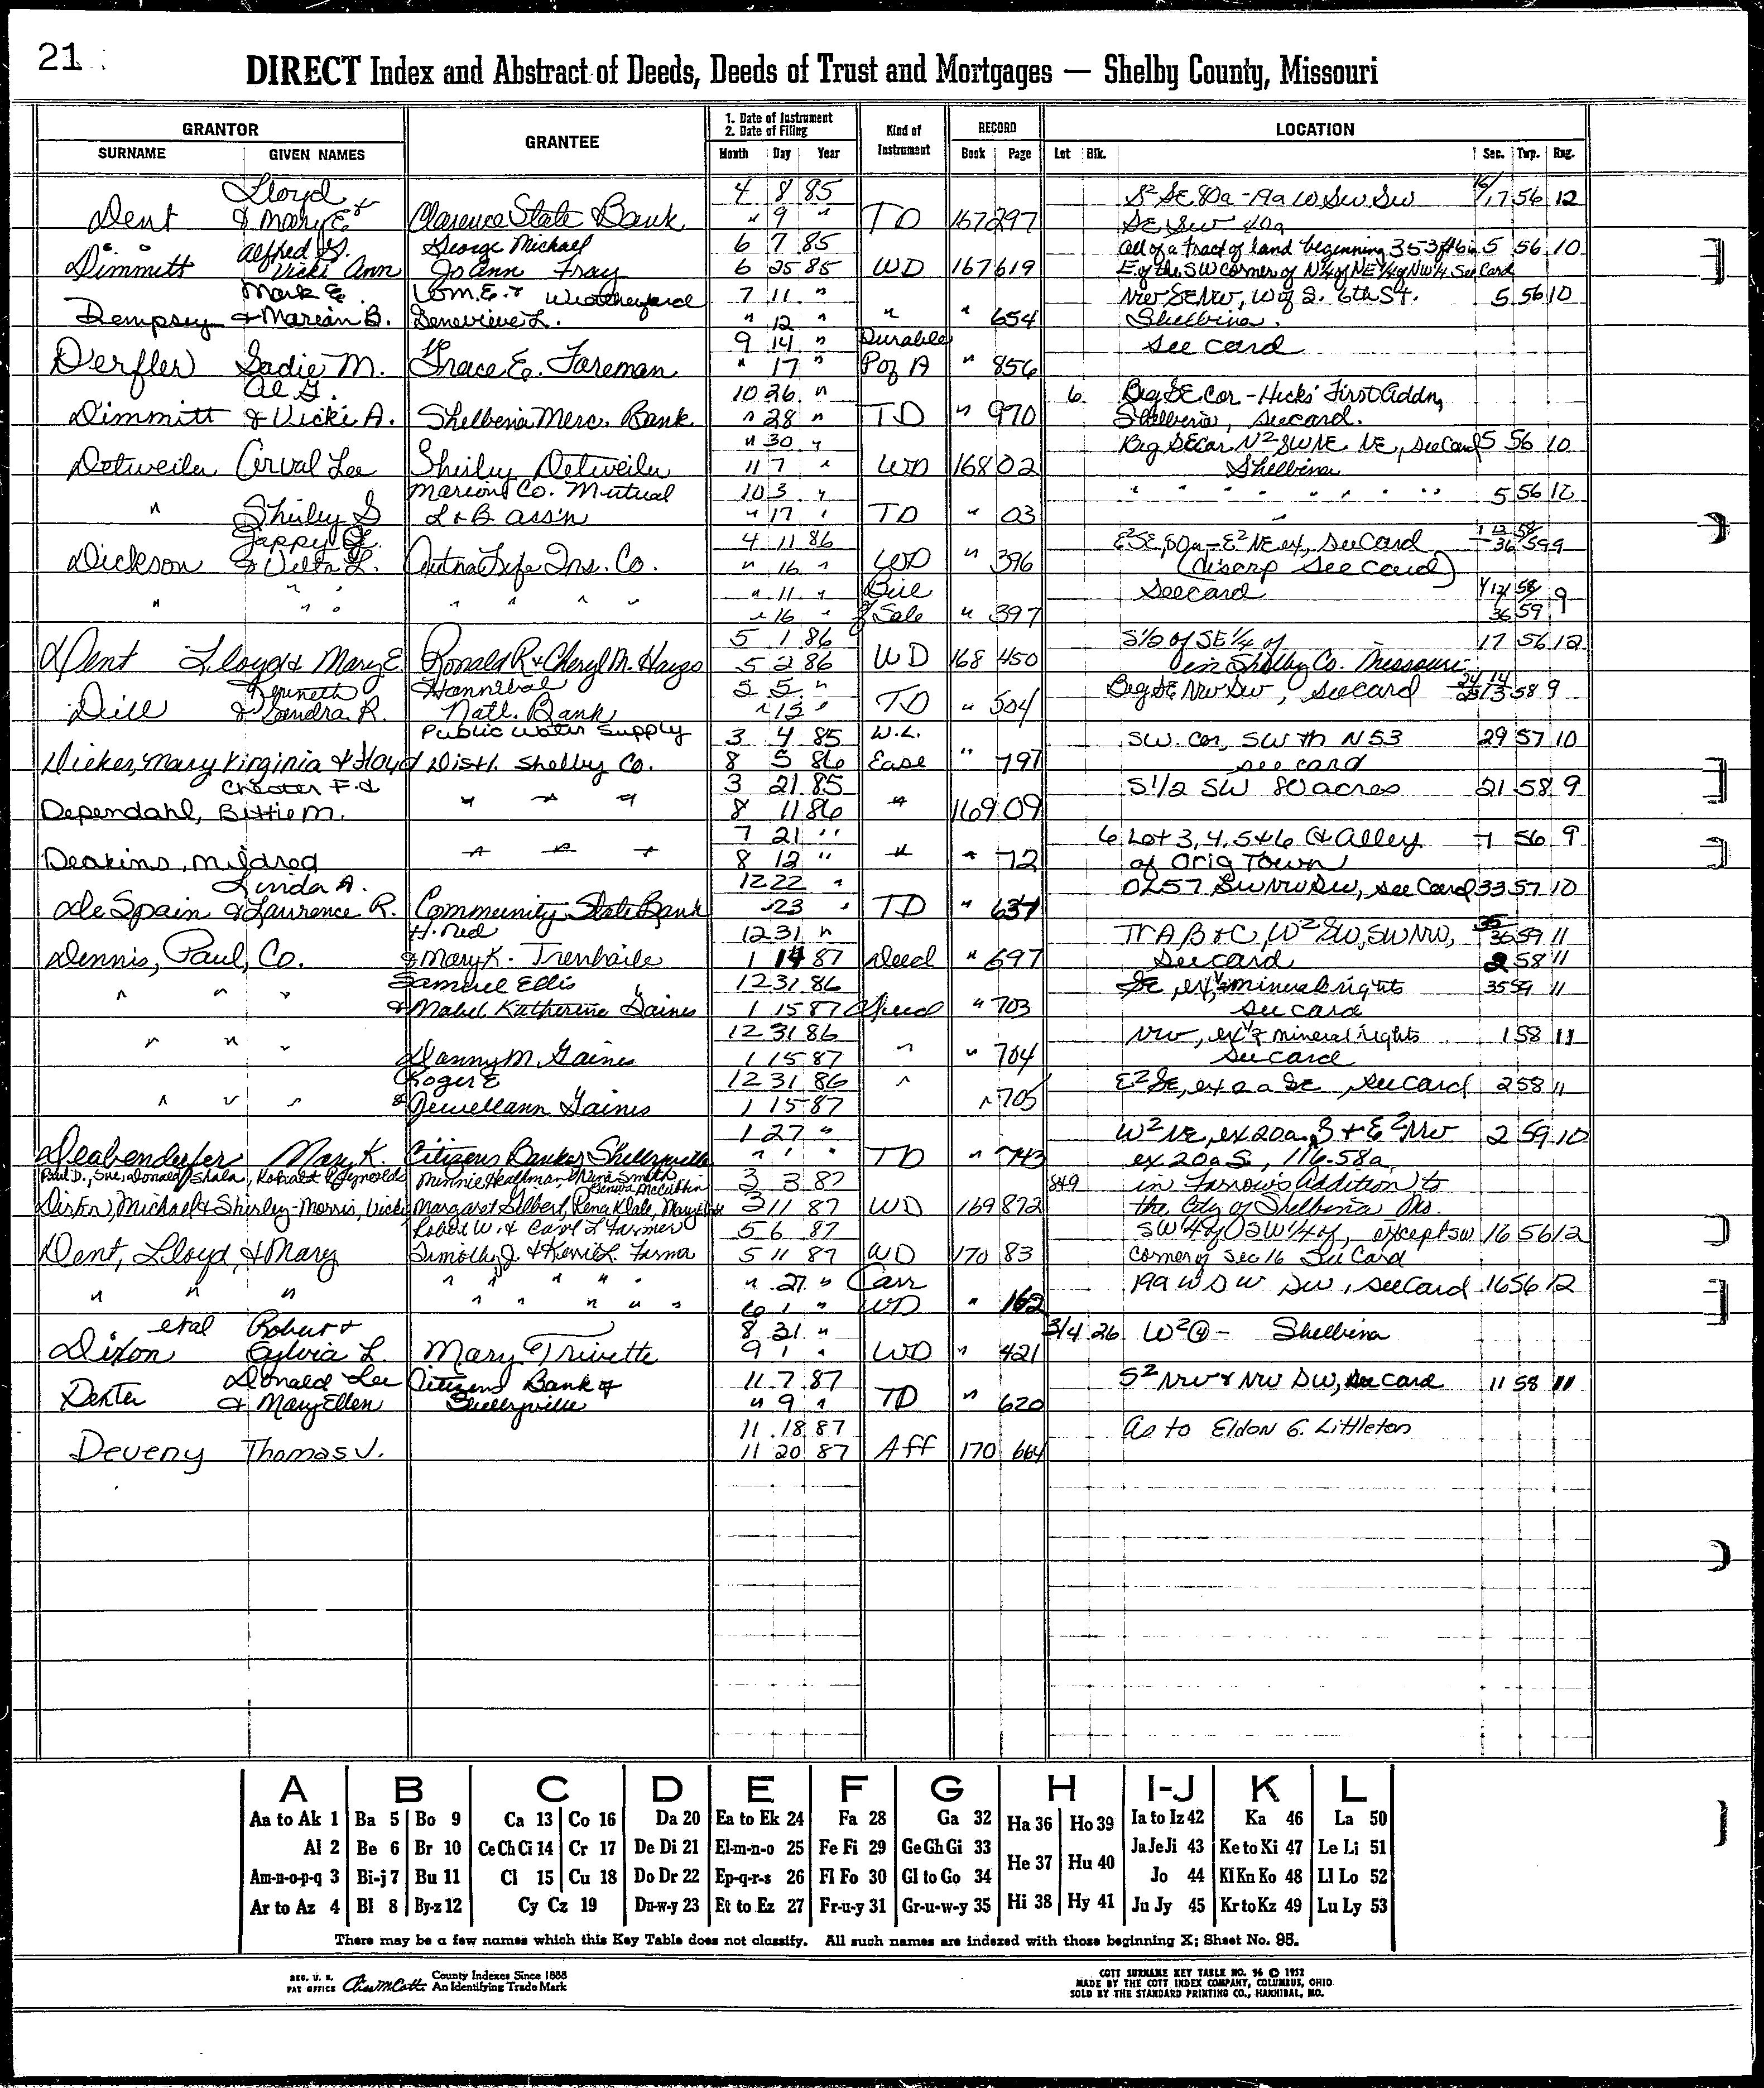 21
DIRECT Index and Abstract of Deeds, Deeds of Trust and Mortgages — Shelby County, Missouri
GRANTOR GRANTEE 1. Date of Instrument 2. Date of Filing Kind of Instrument RECORD LOCATION
SURNAME GIVEN NAMES Month Day Year Book Page Lot Blk. Sec. Twp. Rng.
Lloyd 4 8 85 S² SE 80a - 19a W SW SW 16/17 56 12
Dent & Mary E. Clarence State Bank " 9 " TD 167 297 SE SW 40a
" " Alfred G. George Michael 6 7 85 all of a tract of land beginning 353 ft 6 in 5 56 10
Dimmitt Vicki Ann JoAnn Fray 6 25 85 WD 167 619 E of the SW corner of N½ of NE¼ of NW¼ See Card
Mark E. Wm. E. & Weatherford 7 11 " NW SE NW, W of S. 6th St. 5 56 10
Dempsey & Marian B. Genevieve L. " 12 " " " 654 Shelbina.
9 14 " Durable See card
Derfler Sadie M. Grace E. Foreman " 17 " P of A " 856
Al G. 10 26 " 6 Beg SE Cor - Hicks' First Addn,
Dimmitt & Vicki A. Shelbina Merc. Bank " 28 " TD " 970 Shelbina, see card.
" 30 " Beg SE Cor N² SW NE NE, See Card 5 56 10
Detweiler Orval Lee Shirley Detweiler 11 7 " WD 168 02 Shelbina
Marion Co. Mutual 10 3 " " " " " " " " " 5 56 10
" Shirley S L & B Ass'n " 17 " TD " 03 "
4 11 86 E² SE, 80a - E² NE ex, See Card 1 12 58 36 59 9
Dickson & Velta L. Aetna Life Ins. Co. " 16 " WD " 396 (discrp See Card)
" " " " " " " " 11 " Bill See card 1/12/ 58 9
" 16 " of Sale " 397 36 59
5 1 86 S 1/2 of SE 1/4 of 17 56 12
Dent Lloyd & Mary E Ronald R & Cheryl M. Hays 5 2 86 WD 168 450 in Shelby Co. Missouri
Kenneth Hannibal 5 5 " Beg SE NW SW, See card 24 14 23 13 58 9
Dill & Sandra R. Natl. Bank " 15 " TD " 504
Public Water Supply 3 4 85 W.L. SW. Cor, SW th N 53 29 57 10
Dicker, Mary Virginia & Floyd Dist. Shelby Co. 8 5 86 Ease " 797 see card
Chester F. & 3 21 85 S 1/2 SW 80 acres 21 58 9
Dependahl, Bettie M. " " " 8 11 86 " 169 09
7 21 " 6 Lot 3, 4, 5 & 6 & Alley 7 56 9
Deakins, Mildred " " " 8 12 " " " 72 of Orig Town
Linda A. 12 22 " SW NW SW, see Card 33 57 10
DeSpain & Laurence R. Community State Bank 23 " TD " 637
H. Ned 12 31 " Tr A B & C, W² SW, SW NW, 35 36 59 11
Dennis, Paul, Co. & Mary K. Trenhaile 1 14 87 Deed " 697 See card 2 58 11
Samuel Ellis 12 31 86 SE, ex ½ mineral rights 35 59 11
" " " & Mabel Katherine Gaines 1 15 87 Deed " 703 see card
12 31 86 NW, ex ½ mineral rights 1 58 11
" " " Danny M. Gaines 1 15 87 " " 704 See card
Roger E 12 31 86 " E² SE, ex 2 a SE, See Card 2 58 11
" " " & Jewellann Gaines 1 15 87 " 705
1 27 " W² NE, ex 20a. S & E² NW 2 59 10
Mary K. Citizens Bank of Shelbyville " TD " 743 ex. 20a S, 116.58a
3 3 87 849 in Farrow's Addition to
Margaret Gilbert, 3 11 87 WD 169 872 the City of Shelbina Mo.
Robert W. & Carol L Farmer 5 6 87 SW 1/4 of SW 1/4 of, except SW 16 56 12
Dent, Lloyd, & Mary Timothy J. & Kerri L. Farmer 5 11 87 WD 170 83 corner of Sec 16 See Card
" " " " " " " " 27 " Corr 19a W S W SW, see Card 16 56 12
" " " " " 6 1 " WD " 162
etal Robert & 8 31 " 3/4 26 W² - Shelbina
Dixon Sylvia L. Mary Trivette 9 1 " WD " 421
Donald Lee Citizens Bank of 11 7 87 S² NW & NW SW, See card 11 58 11
Dexter & Mary Ellen Shelbyville " 9 " TD " 620
11 18 87 As to Eldon G. Littleton
Deveny Thomas J. 11 20 87 Aff 170 664
A B C D E F G H I-J K L
Aa to Ak 1 Ba 5 Bo 9 Ca 13 Co 16 Da 20 Ea to Ek 24 Fa 28 Ga 32 Ha 36 Ho 39 Ia to Iz 42 Ka 46 La 50
Al 2 Be 6 Br 10 Ce Ch Ci 14 Cr 17 De Di 21 El-m-n-o 25 Fe Fi 29 Ge Gh Gi 33 He 37 Hu 40 Ja Je Ji 43 Ke to Ki 47 Le Li 51
Am-n-o-p-q 3 Bi-j 7 Bu 11 Cl 15 Cu 18 Do Dr 22 Ep-q-r-s 26 Fl Fo 30 Gl to Go 34 Jo 44 Kl Kn Ko 48 Ll Lo 52
Ar to Az 4 Bl 8 By-z 12 Cy Cz 19 Du-w-y 23 Et to Ez 27 Fr-u-y 31 Gr-u-w-y 35 Hi 38 Hy 41 Ju Jy 45 Kr to Kz 49 Lu Ly 53
There may be a few names which this Key Table does not classify. All such names are indexed with those beginning X; Sheet No. 95.
REG. U. S. PAT OFFICE County Indexes Since 1888 An Identifying Trade Mark
COTT SURNAME KEY TABLE NO. 96 © 1952
MADE BY THE COTT INDEX COMPANY, COLUMBUS, OHIO
SOLD BY THE STANDARD PRINTING CO., HANNIBAL, MO.